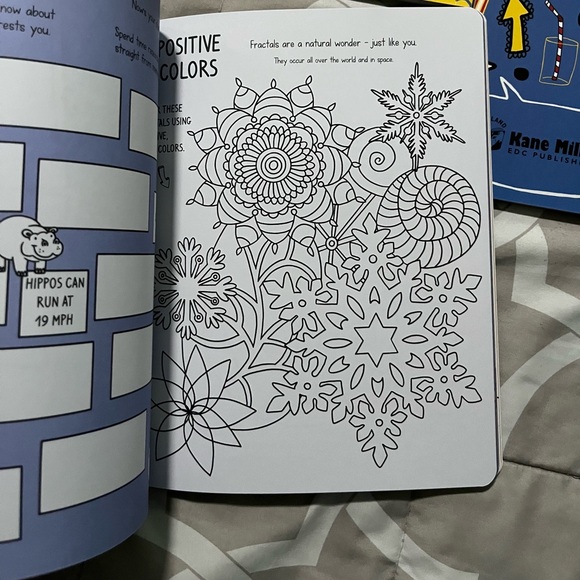 now about
rests you.
Spend
straight from
HIPPOS CAN
RUN AT
19 MPH
POSITIVE
COLORS
THESE
USING
COLORS.
Fractals are a natural wonder – just like you.
They occur all over the world and in space.
Kane Mil
EDC PUBLISH